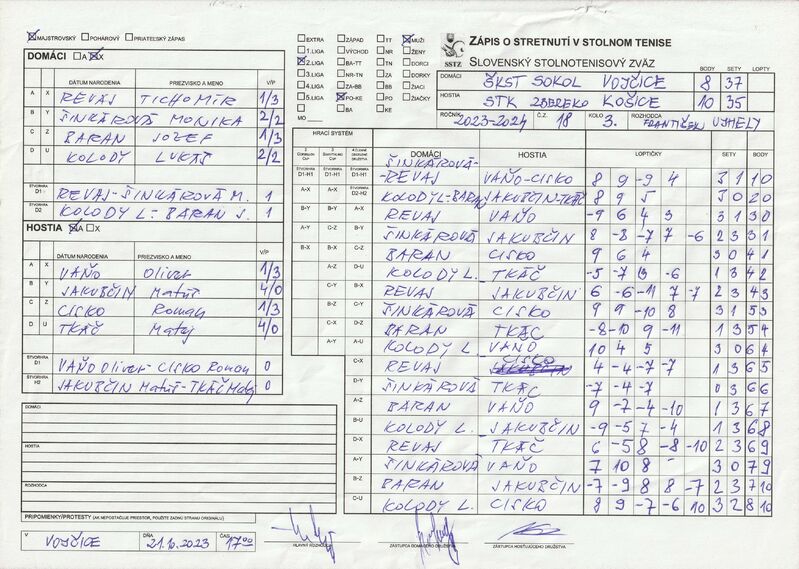 MAJSTROVSKÝ POHÁROVÝ PRIATEĽSKÝ ZÁPAS
DOMÁCI A X
DÁTUM NARODENIA PRIEZVISKO A MENO V/P
A X REVAJ TICHOMÍR 1/3
B Y ŠINKÁROVÁ MONIKA 2/2
C Z BARAN JOZEF 1/3
D U KOLODY LUKÁŠ 2/2
ŠTVORHRA D1 REVAJ-ŠINKÁROVÁ M. 1
ŠTVORHRA D2 KOLODY L-BARAN J. 1
HOSTIA A X
DÁTUM NARODENIA PRIEZVISKO A MENO V/P
A X VAŇO Oliver 1/3
B Y JAKUBČIN Matúš 4/0
C Z CISKO Roman 1/3
D U TKÁČ Matej 4/0
ŠTVORHRA D1 VAŇO Oliver-CISKO Roman 0
ŠTVORHRA H2 JAKUBČIN Matúš-TKÁČ Matej 0
DOMÁCI
HOSTIA
ROZHODCA
PRIPOMIENKY/PROTESTY (AK NEPOSTAČUJE PRIESTOR, POUŽITE ZADNÚ STRANU ORIGINÁLU)
V VOJČICE DŇA 21.10.2023 ČAS 17:00
EXTRA ZÁPAD TT MUŽI
1.LIGA VÝCHOD NR ŽENY
2.LIGA BA-TT TN DORCI
3.LIGA NR-TN ZA DORKY
4.LIGA ZA-BB BB ŽIACI
5.LIGA PO-KE PO ŽIAČKY
MO BA KE
SSTZ
ZÁPIS O STRETNUTÍ V STOLNOM TENISE
SLOVENSKÝ STOLNOTENISOVÝ ZVÄZ
BODY SETY LOPTY
DOMÁCI ŠKST SOKOL VOJČICE 8 37
HOSTIA STK ZBEREKO KOŠICE 10 35
ROČNÍK 2023-2024 Č.Z. 18 KOLO 3. ROZHODCA FRANTIŠEK UJHELY
HRACÍ SYSTÉM
DOMÁCI HOSTIA LOPTIČKY SETY BODY
ŠTVORHRA D1-H1 ŠTVORHRA D1-H1 ŠTVORHRA D1-H1 ŠINKÁROVÁ-REVAJ VAŇO-CISKO 8 9 -9 4 3 1 1 0
A-X A-X ŠTVORHRA D2-H2 KOLODY L-BARAN JAKUBČIN-TKÁČ 8 9 5 3 0 2 0
B-Y B-Y A-X REVAJ VAŇO -9 6 4 3 3 1 3 0
A-Y C-Z B-Y ŠINKÁROVÁ JAKUBČIN 8 -8 -7 7 -6 2 3 3 1
B-X B-X C-Z BARAN CISKO 9 6 4 3 0 4 1
A-Z D-U KOLODY L. TKÁČ -5 -7 13 -6 1 3 4 2
C-Y B-X REVAJ JAKUBČIN 6 -6 -11 7 -7 2 3 4 3
B-Z C-Y ŠINKÁROVÁ CISKO 9 9 -10 8 3 1 5 3
C-X D-Z BARAN TKÁČ -8 -10 9 -11 1 3 5 4
A-Y A-U KOLODY L. VAŇO 10 4 5 3 0 6 4
C-X REVAJ CISKO 4 -4 -7 -7 1 3 6 5
D-Y ŠINKÁROVÁ TKÁČ -7 -4 -7 0 3 6 6
A-Z BARAN VAŇO 9 -7 -4 -10 1 3 6 7
B-U KOLODY L. JAKUBČIN -9 -5 7 -4 1 3 6 8
D-X REVAJ TKÁČ 6 -5 8 -8 -10 2 3 6 9
A-Y ŠINKÁROVÁ VAŇO 7 10 8 3 0 7 9
B-Z BARAN JAKUBČIN -7 -9 8 8 -7 2 3 7 10
C-U KOLODY L. CISKO 8 9 -7 -6 10 3 2 8 10
HLAVNÝ ROZHODCA ZÁSTUPCA DOMÁCEHO DRUŽSTVA ZÁSTUPCA HOSŤUJÚCEHO DRUŽSTVA